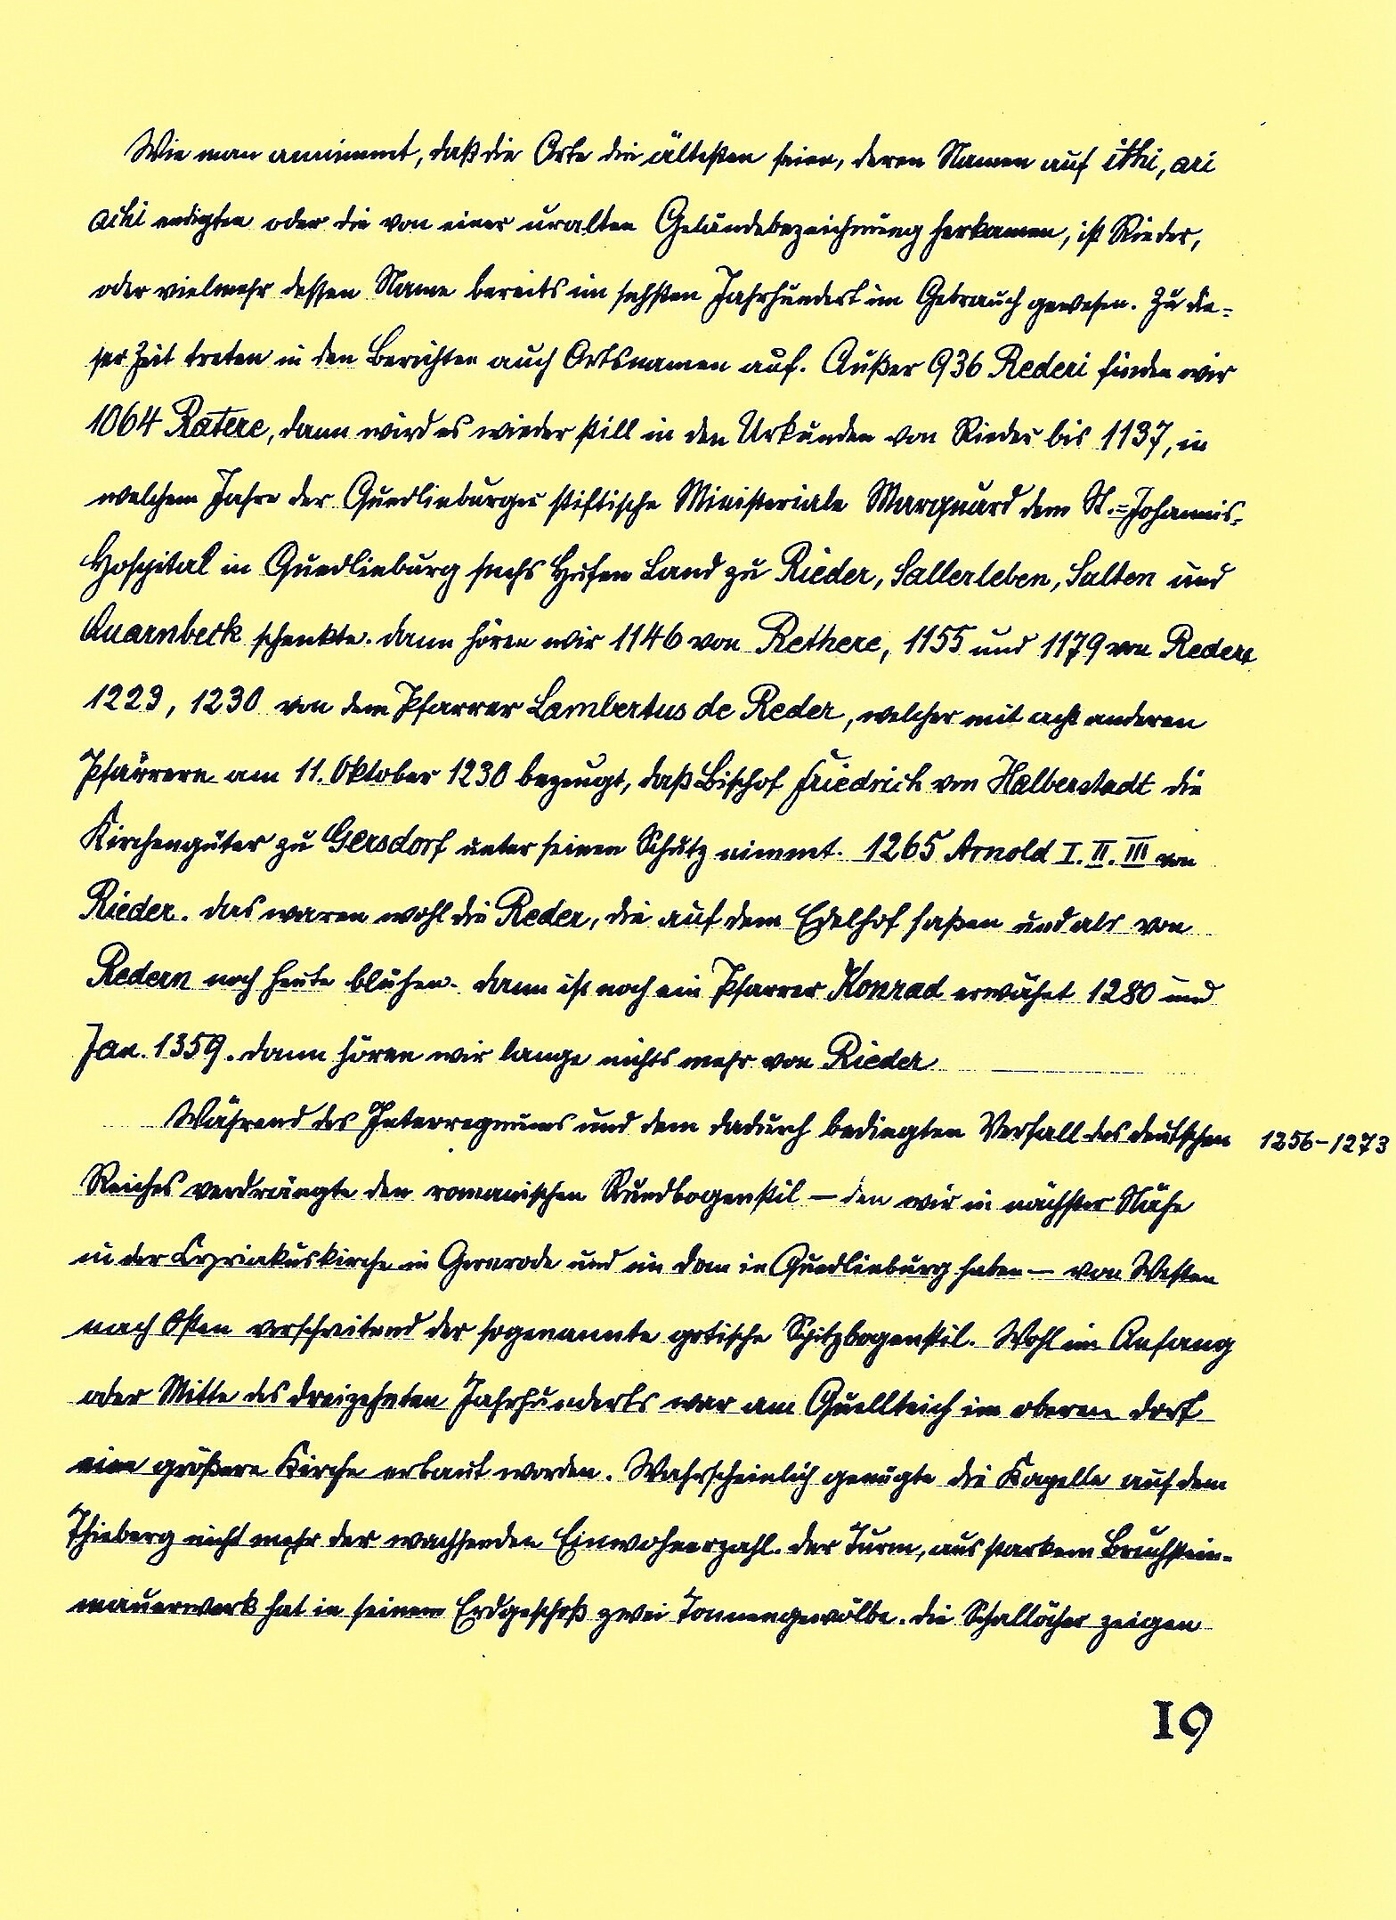 Wie man annimmt, daß die Orte die ältesten seien, deren Namen auf ithi, ari
achi endigten oder die von einer uralten Geländebezeichnung herkamen, ist Rieder,
oder vielmehr dessen Name bereits im sechsten Jahrhundert im Gebrauch gewesen. Zu die=
ser Zeit treten in den Berichten auch Ortsnamen auf. Außer 936 Rederi finden wir
1064 Ratere, dann wird es wieder still in den Urkunden von Rieder bis 1137, in
welchem Jahre der Quedlinburger stiftische Ministeriale Marquard dem St.=Johannis=
Hospital in Quedlinburg sechs Hufen Land zu Rieder, Sallersleben, Salten und
Quarnbeck schenkte. Dann hören wir 1146 von Rethere, 1155 und 1179 von Redere
1223, 1230 von dem Pfarrer Lambertus de Reder, welcher mit acht anderen
Pfarrern am 11. Oktober 1230 bezeugt, daß Bischof Friedrich von Halberstadt die
Kirchengüter zu Gersdorf unter seinen Schutz nimmt. 1265 Arnold I. II. III von
Rieder. Das waren wohl die Reder, die auf dem Edelhof saßen und als von
Redern noch heute blühen. Dann ist noch ein Pfarrer Konrad erwähnt 1280 und
Jan. 1359. Dann hören wir lange nichts mehr von Rieder
Während des Interregnums und dem dadurch bedingten Verfall des deutschen 1256-1273
Reiches verdrängte den romanischen Rundbogenstil — den wir in nächster Nähe
in der Cyriakuskirche in Gernrode und im Dom in Quedlinburg haben — von Westen
nach Osten vorschreitend der sogenannte gotische Spitzbogenstil. Wohl im Anfang
oder Mitte des dreizehnten Jahrhunderts war am Quellteich im oberen Dorf
eine größere Kirche erbaut worden. Wahrscheinlich genügte die Kapelle auf dem
Thieberg nicht mehr der wachsenden Einwohnerzahl. Der Turm, aus starkem Bruchstein=
mauerwerk hat in seinem Erdgeschoß zwei Tonnengewölbe. Die Schallöcher zeigen
19